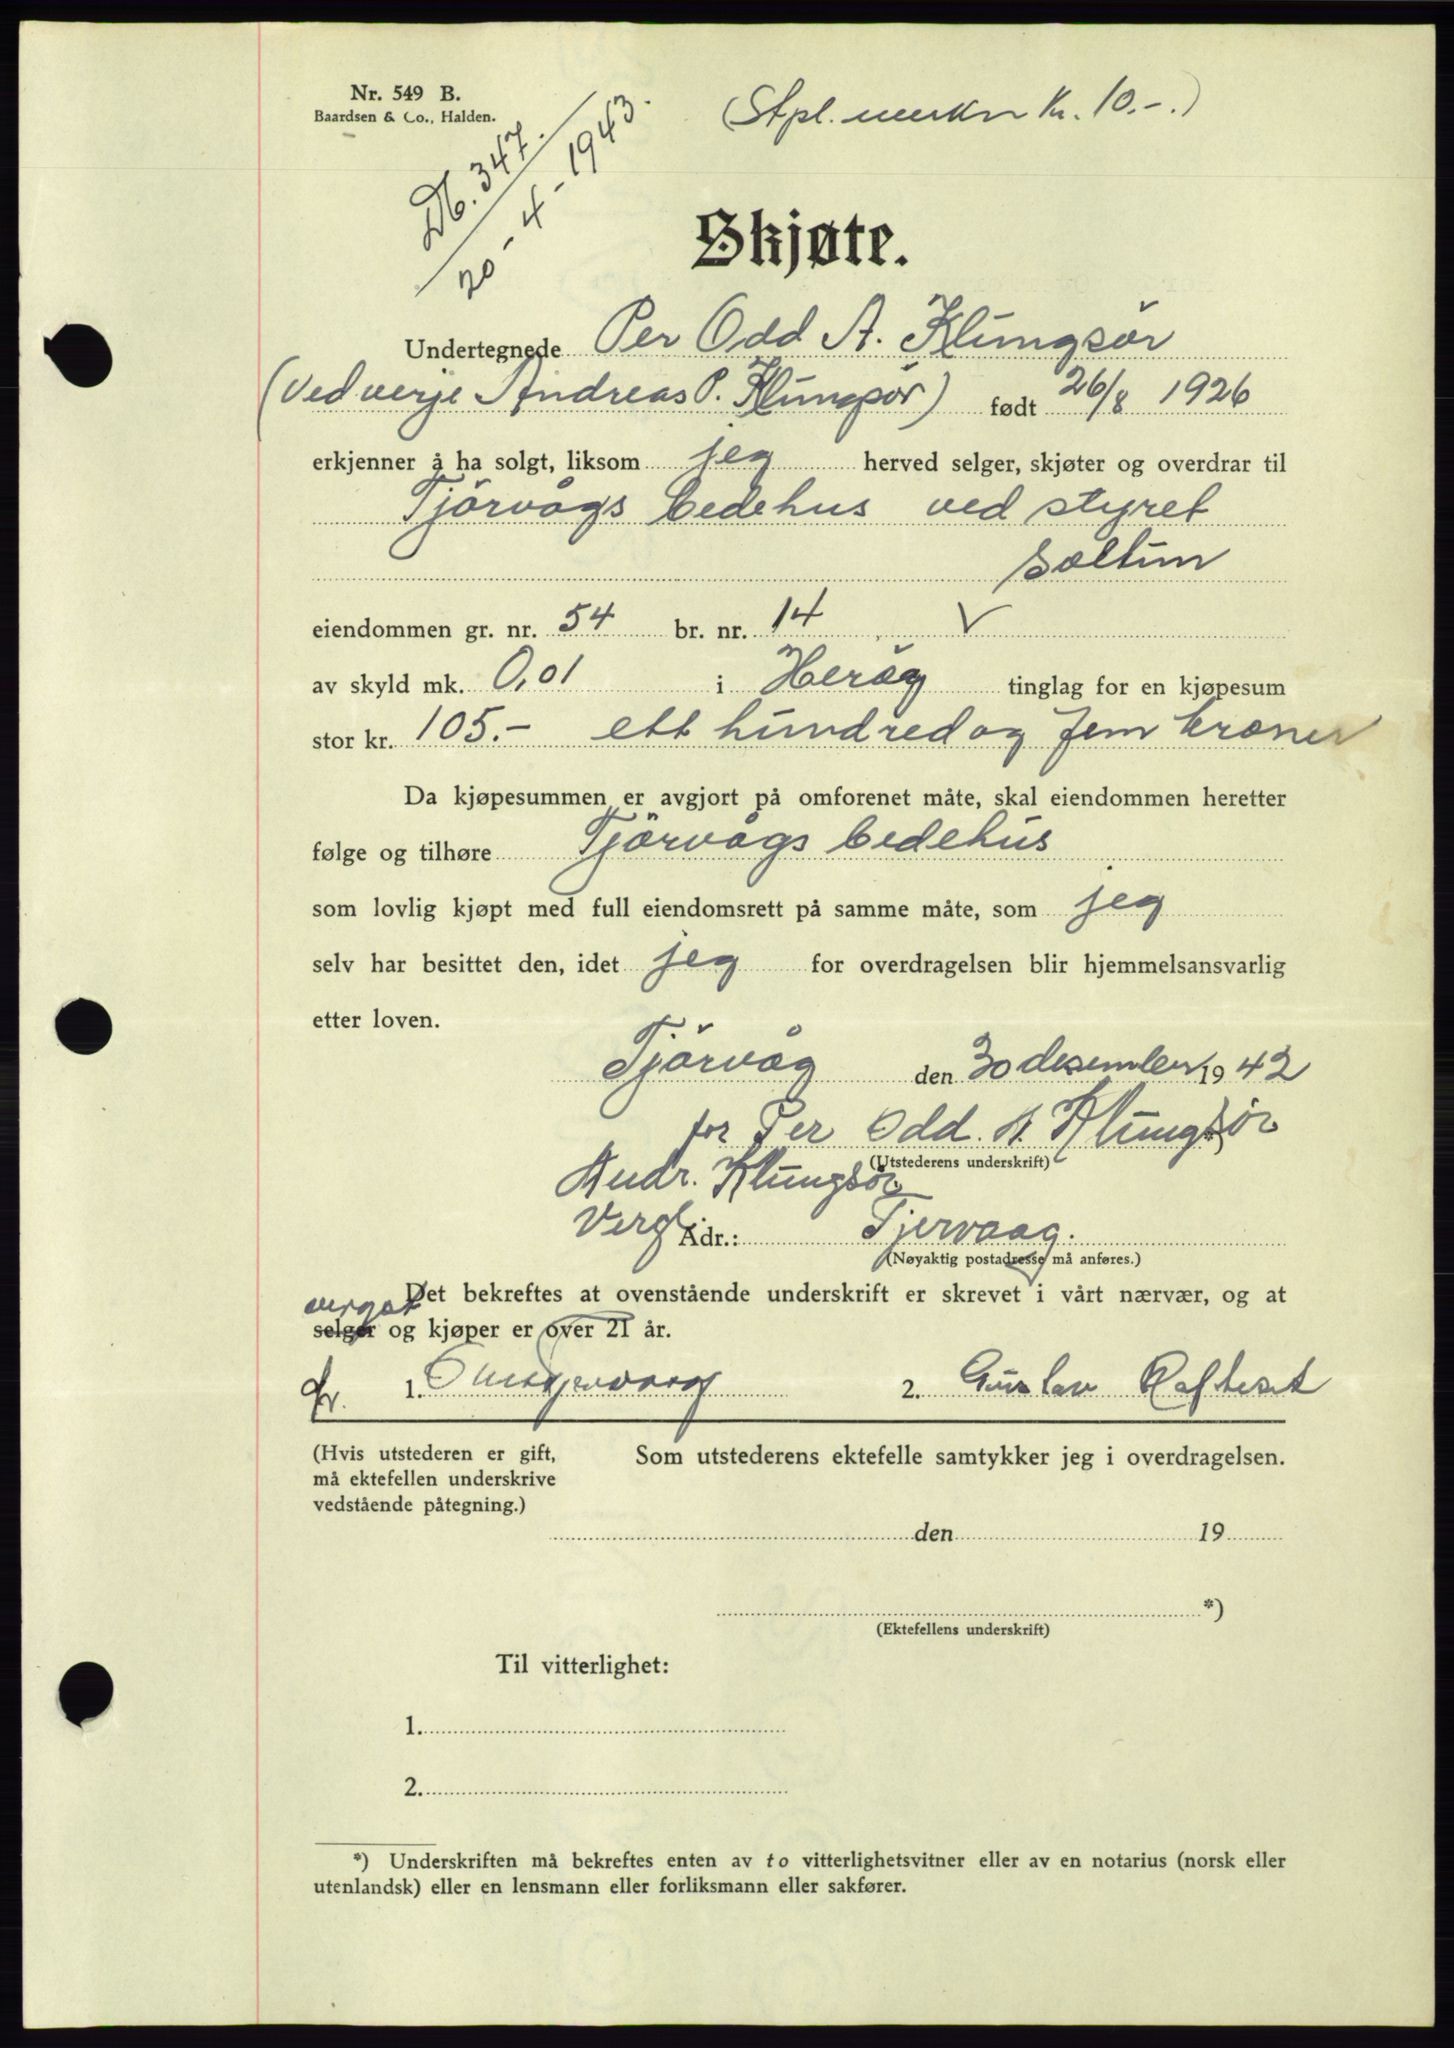 Nr. 549 B.
Baardsen & Co., Halden.
(Stpl. merker kr. 10.-.)
Db. 347.
20-4-1943.
Skjøte.
Undertegnede Per Odd A. Klungsör
(ved verje Andreas P. Klungsör) født 26/8 1926
erkjenner å ha solgt, liksom jeg herved selger, skjøter og overdrar til
Tjörvågs bedehus ved styret
Soltun
eiendommen gr. nr. 54 br. nr. 14 , V
av skyld mk. 0,01 i Heröy tinglag for en kjøpesum
stor kr. 105.- ett hundred og fem kroner
Da kjøpesummen er avgjort på omforenet måte, skal eiendommen heretter
følge og tilhøre Tjörvågs bedehus
som lovlig kjøpt med full eiendomsrett på samme måte, som jeg
selv har besittet den, idet jeg for overdragelsen blir hjemmelsansvarlig
etter loven.
Tjörvåg den 30 desember 1942
for Per Odd A. Klungsör
(Utstederens underskrift)
Andr. Klungsör
Verge. Adr.: Tjervaag.
(Nøyaktig postadresse må anføres.)
Det bekreftes at ovenstående underskrift er skrevet i vårt nærvær, og at
vergar
selger og kjøper er over 21 år.
1. 2. Gustav Rafteset
(Hvis utstederen er gift,
må ektefellen underskrive
vedstående påtegning.)
Som utstederens ektefelle samtykker jeg i overdragelsen.
den 19
*)
(Ektefellens underskrift)
Til vitterlighet:
1.
2.
*) Underskriften må bekreftes enten av to vitterlighetsvitner eller av en notarius (norsk eller
utenlandsk) eller en lensmann eller forliksmann eller sakfører.